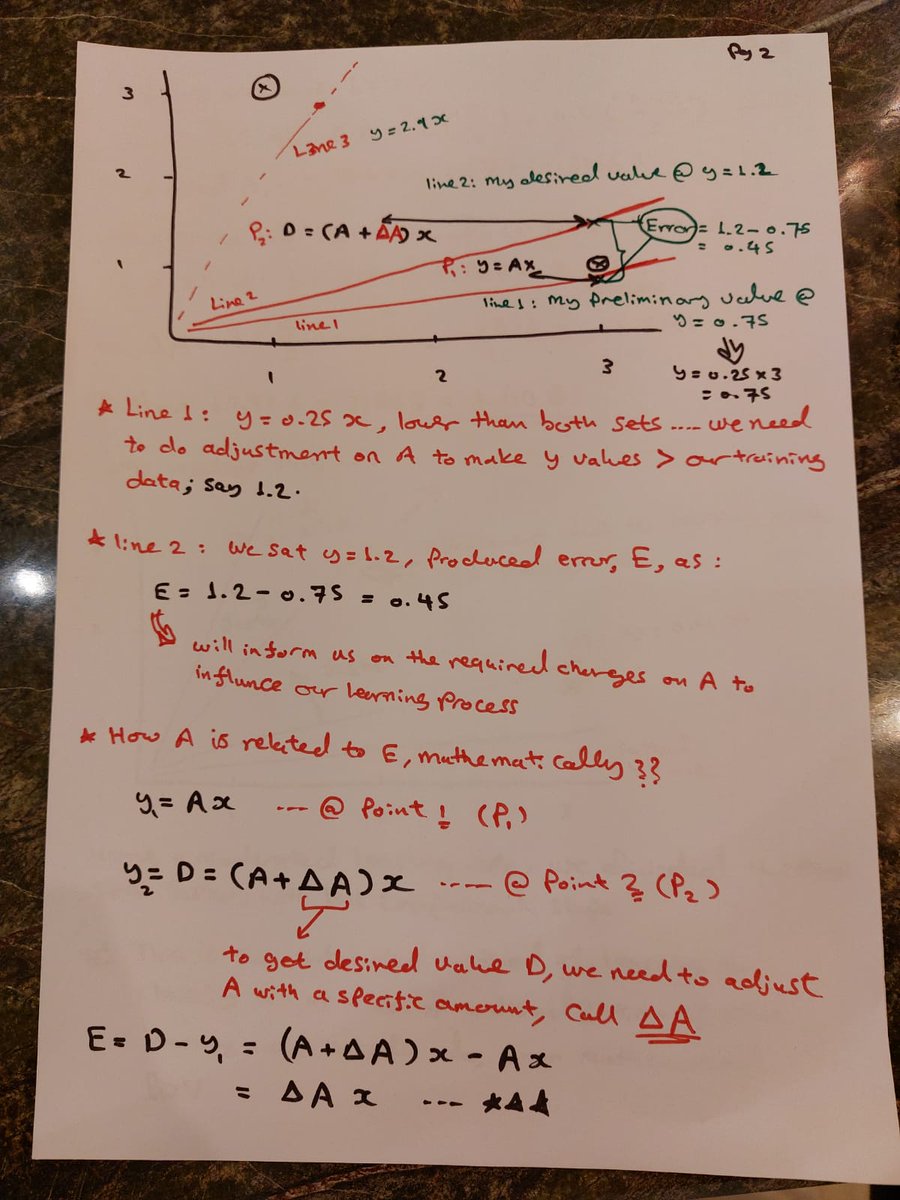 Pg 2
3
2
1
Line 3 y = 2.9x
line 2: My desired value @ y = 1.2
P₂: D = (A + ΔA) x
Error = 1.2 - 0.75
= 0.45
P₁: y = Ax
Line 2
line 1
line 1: My Preliminary value @
y = 0.75
y = 0.25 x 3
= 0.75
1 2 3
* Line 1: y = 0.25 x, lower than both sets .... we need
to do adjustment on A to make y values > our training
data; say 1.2.
* line 2: we sat y = 1.2, Produced error, E, as:
E = 1.2 - 0.75 = 0.45
will inform us on the required changes on A to
influnce our learning process
* How A is related to E, mathematically ??
y₁ = Ax --- @ Point 1 (P₁)
y₂ = D = (A + ΔA) x ---- @ Point 2 (P₂)
to get desired value D, we need to adjust
A with a specific amount, Call ΔA
E = D - y₁ = (A + ΔA) x - Ax
= ΔA x